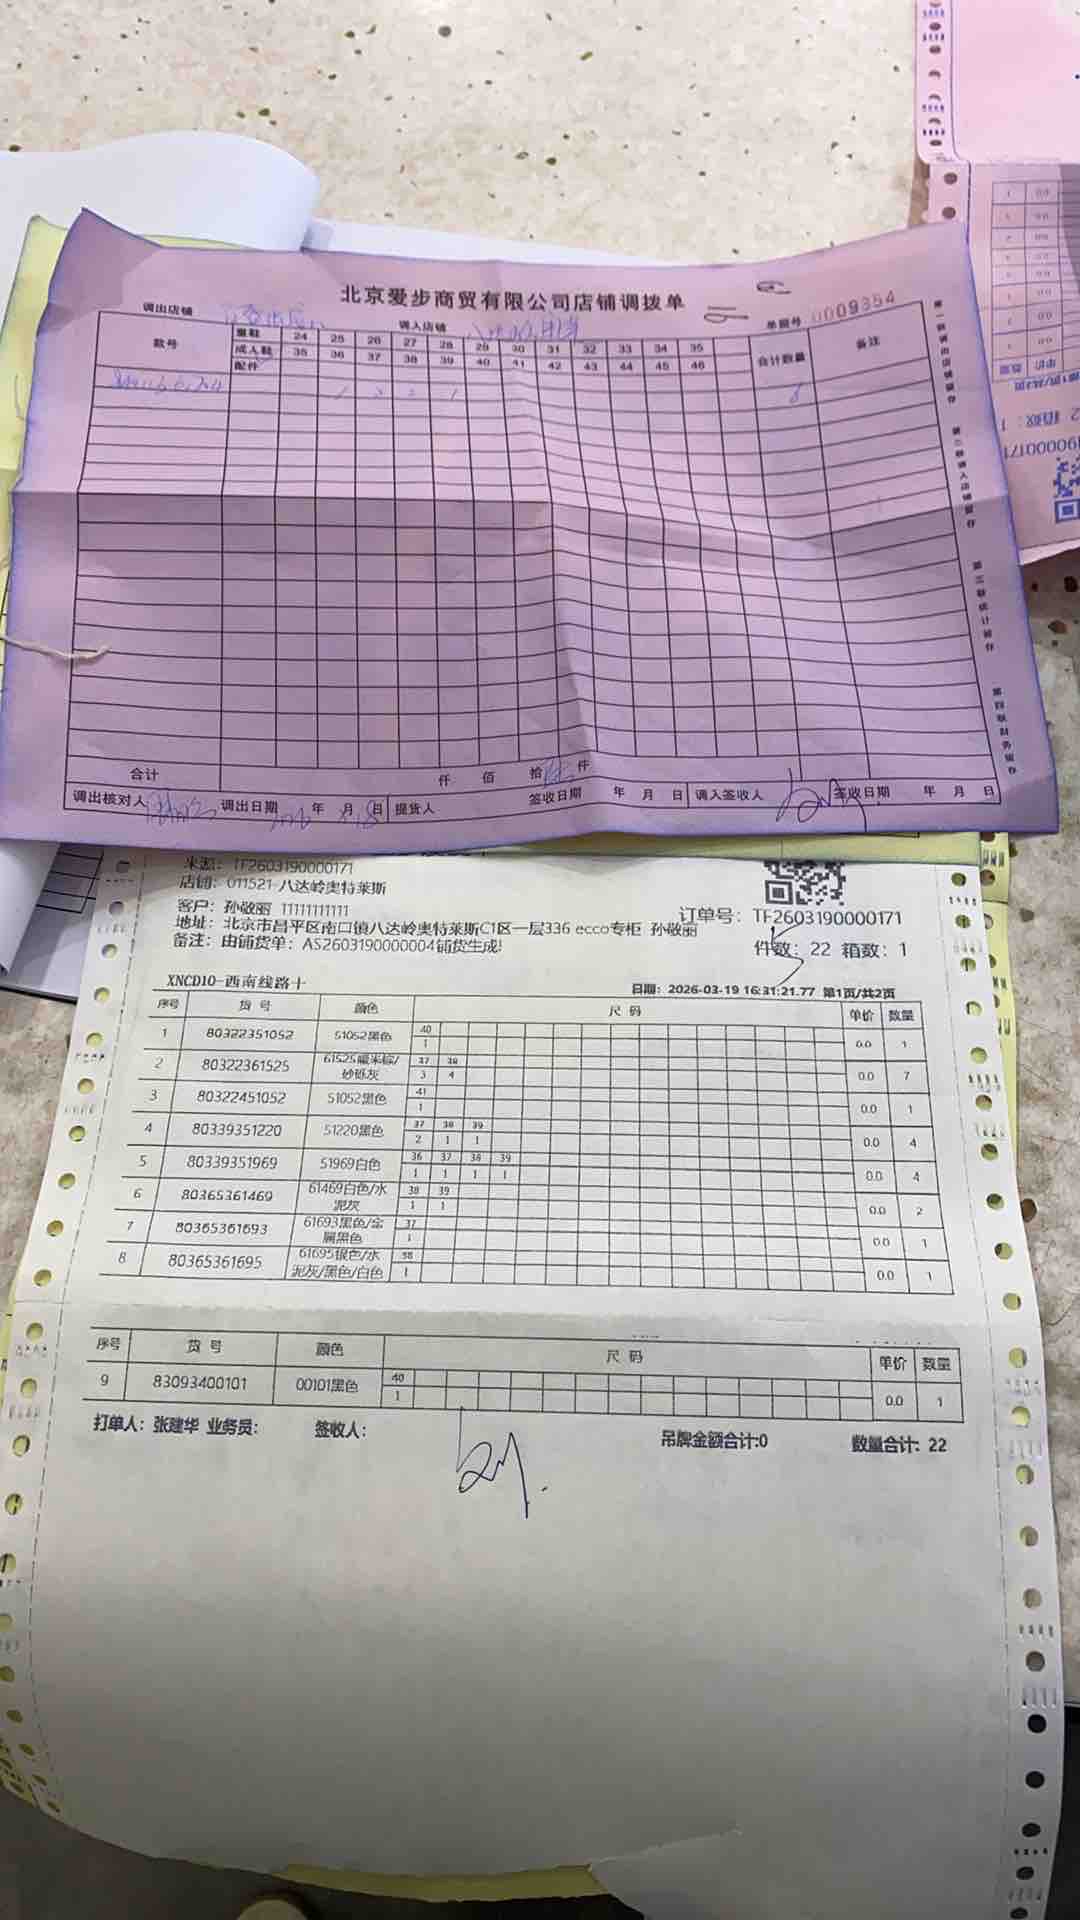 北京爱步商贸有限公司店铺调拨单
调出店铺 调入店铺 单据号 0009354
款号 童鞋 24 25 26 27 28 29 30 31 32 33 34 35 合计数量 备注
成人鞋 35 36 37 38 39 40 41 42 43 44 45 46
配件
1 2 2 1
合计 仟 佰 拾 件
调出核对人 调出日期 年 月 日 提货人 签收日期 年 月 日 调入签收人 签收日期 年 月 日
来源: TF2603190000171
店铺: 011521-八达岭奥特莱斯
客户: 孙敬丽 11111111111
订单号: TF2603190000171
地址: 北京市昌平区南口镇八达岭奥特莱斯C1区一层336 ecco专柜 孙敬丽
备注: 由铺货单: AS2603190000004铺货生成!
件数: 22 箱数: 1
XNCD10-西南线路十
日期: 2026-03-19 16:31:21.77 第1页/共2页
序号 货 号 颜色 尺 码 单价 数量
1 80322351052 51052黑色 40 0.0 1
1
2 80322361525 61525暖米棕/砂砾灰 37 38 0.0 7
3 4
3 80322451052 51052黑色 41 0.0 1
1
4 80339351220 51220黑色 37 38 39 0.0 4
2 1 1
5 80339351969 51969白色 36 37 38 39 0.0 4
1 1 1 1
6 80365361469 61469白色/水泥灰 38 39 0.0 2
1 1
7 80365361693 61693黑色/金属黑色 37 0.0 1
1
8 80365361695 61695银色/水泥灰/黑色/白色 38 0.0 1
1
序号 货 号 颜色 尺 码 单价 数量
9 83093400101 00101黑色 40 0.0 1
1
打单人: 张建华 业务员: 签收人: 吊牌金额合计:0 数量合计: 22